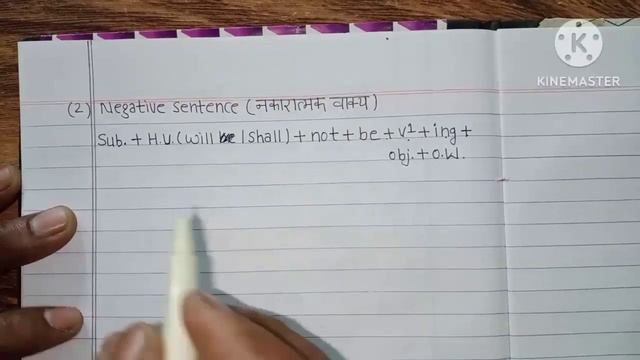 KINEMASTER
(2) Negative sentence (नकारात्मक वाक्य)
Sub. + H.V. (will / shall) + not + be + v1 + ing +
obj. + O.W.